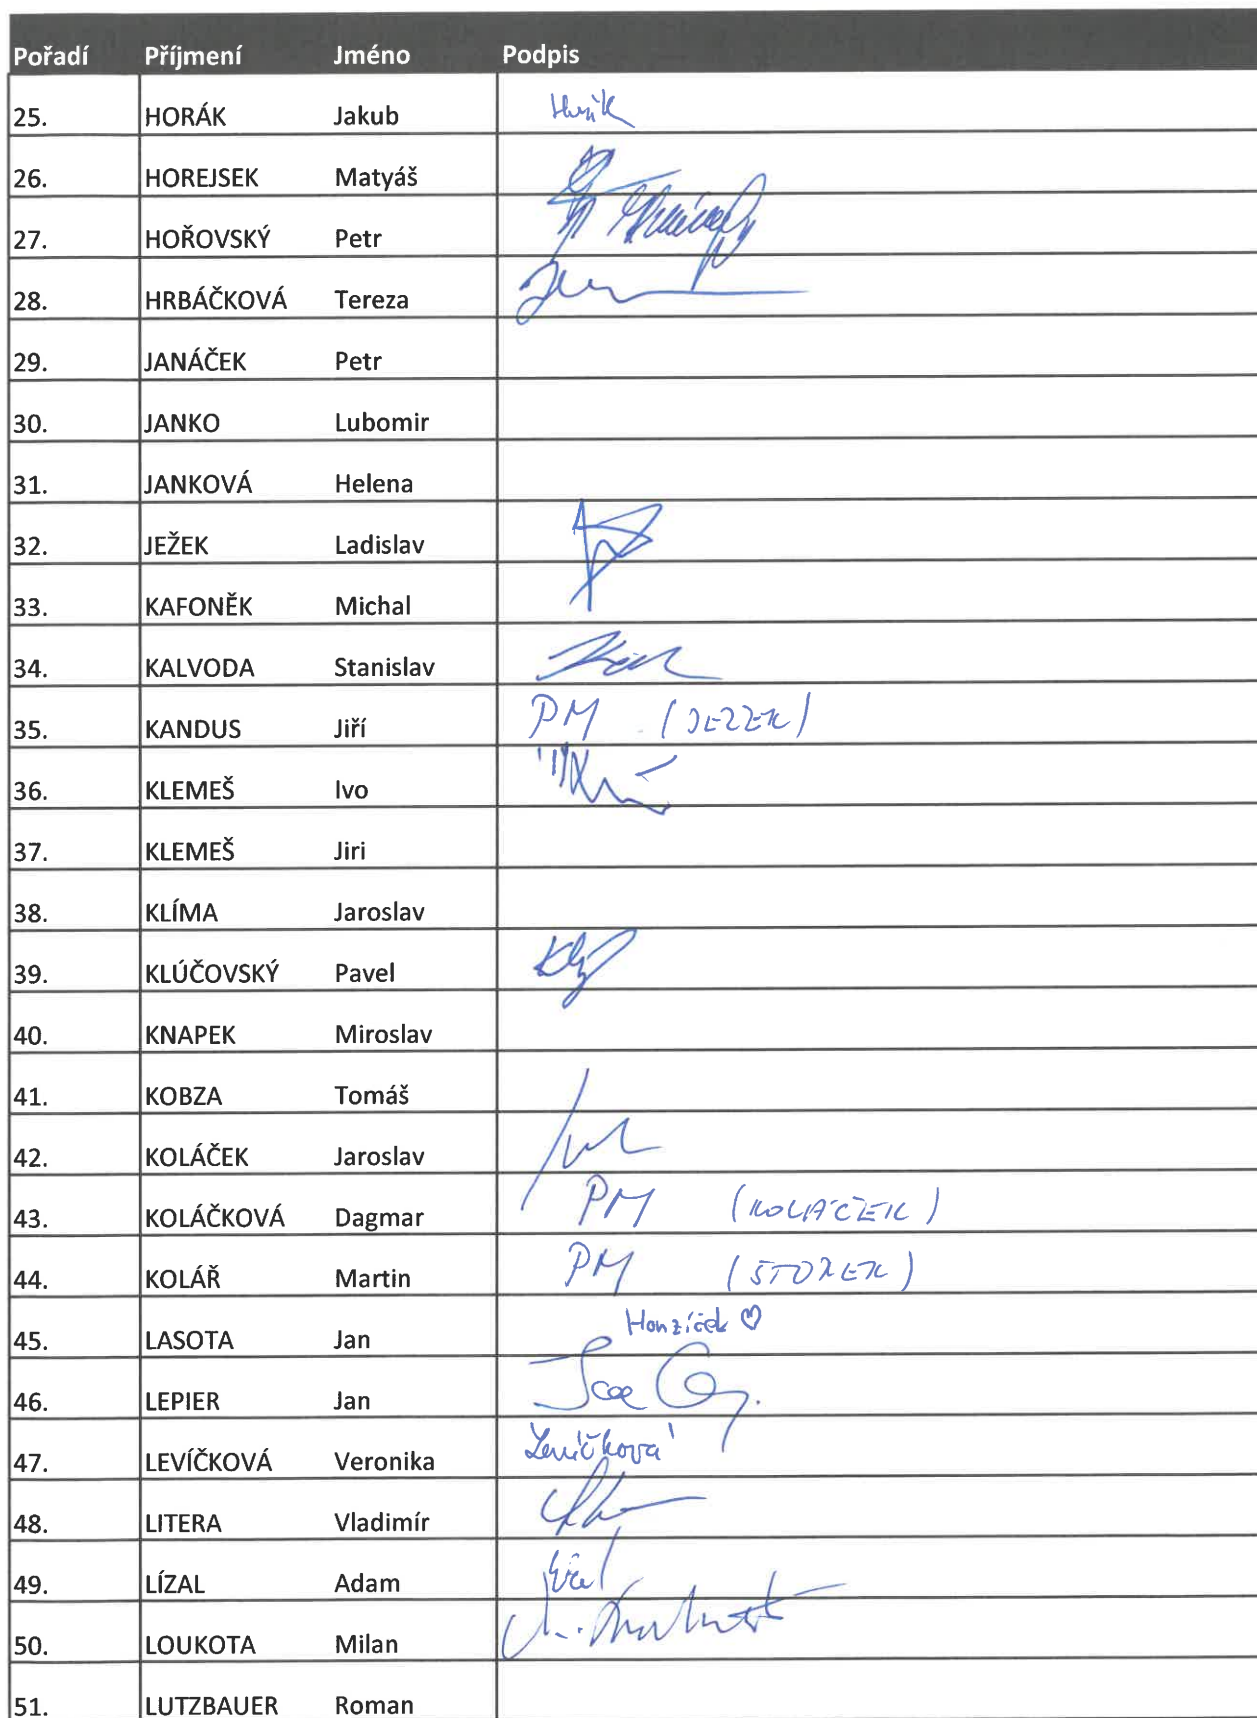 Pořadí Příjmení Jméno Podpis
25. HORÁK Jakub Horák
26. HOREJSEK Matyáš
27. HOŘOVSKÝ Petr
28. HRBÁČKOVÁ Tereza
29. JANÁČEK Petr
30. JANKO Lubomir
31. JANKOVÁ Helena
32. JEŽEK Ladislav
33. KAFONĚK Michal
34. KALVODA Stanislav
35. KANDUS Jiří PM (JEZEK)
36. KLEMEŠ Ivo
37. KLEMEŠ Jiri
38. KLÍMA Jaroslav
39. KLÚČOVSKÝ Pavel
40. KNAPEK Miroslav
41. KOBZA Tomáš
42. KOLÁČEK Jaroslav
43. KOLÁČKOVÁ Dagmar PM (KOLÁČEK)
44. KOLÁŘ Martin PM (ŠTOREK)
45. LASOTA Jan Honzíček ♡
46. LEPIER Jan
47. LEVÍČKOVÁ Veronika Levíčková
48. LITERA Vladimír
49. LÍZAL Adam
50. LOUKOTA Milan
51. LUTZBAUER Roman